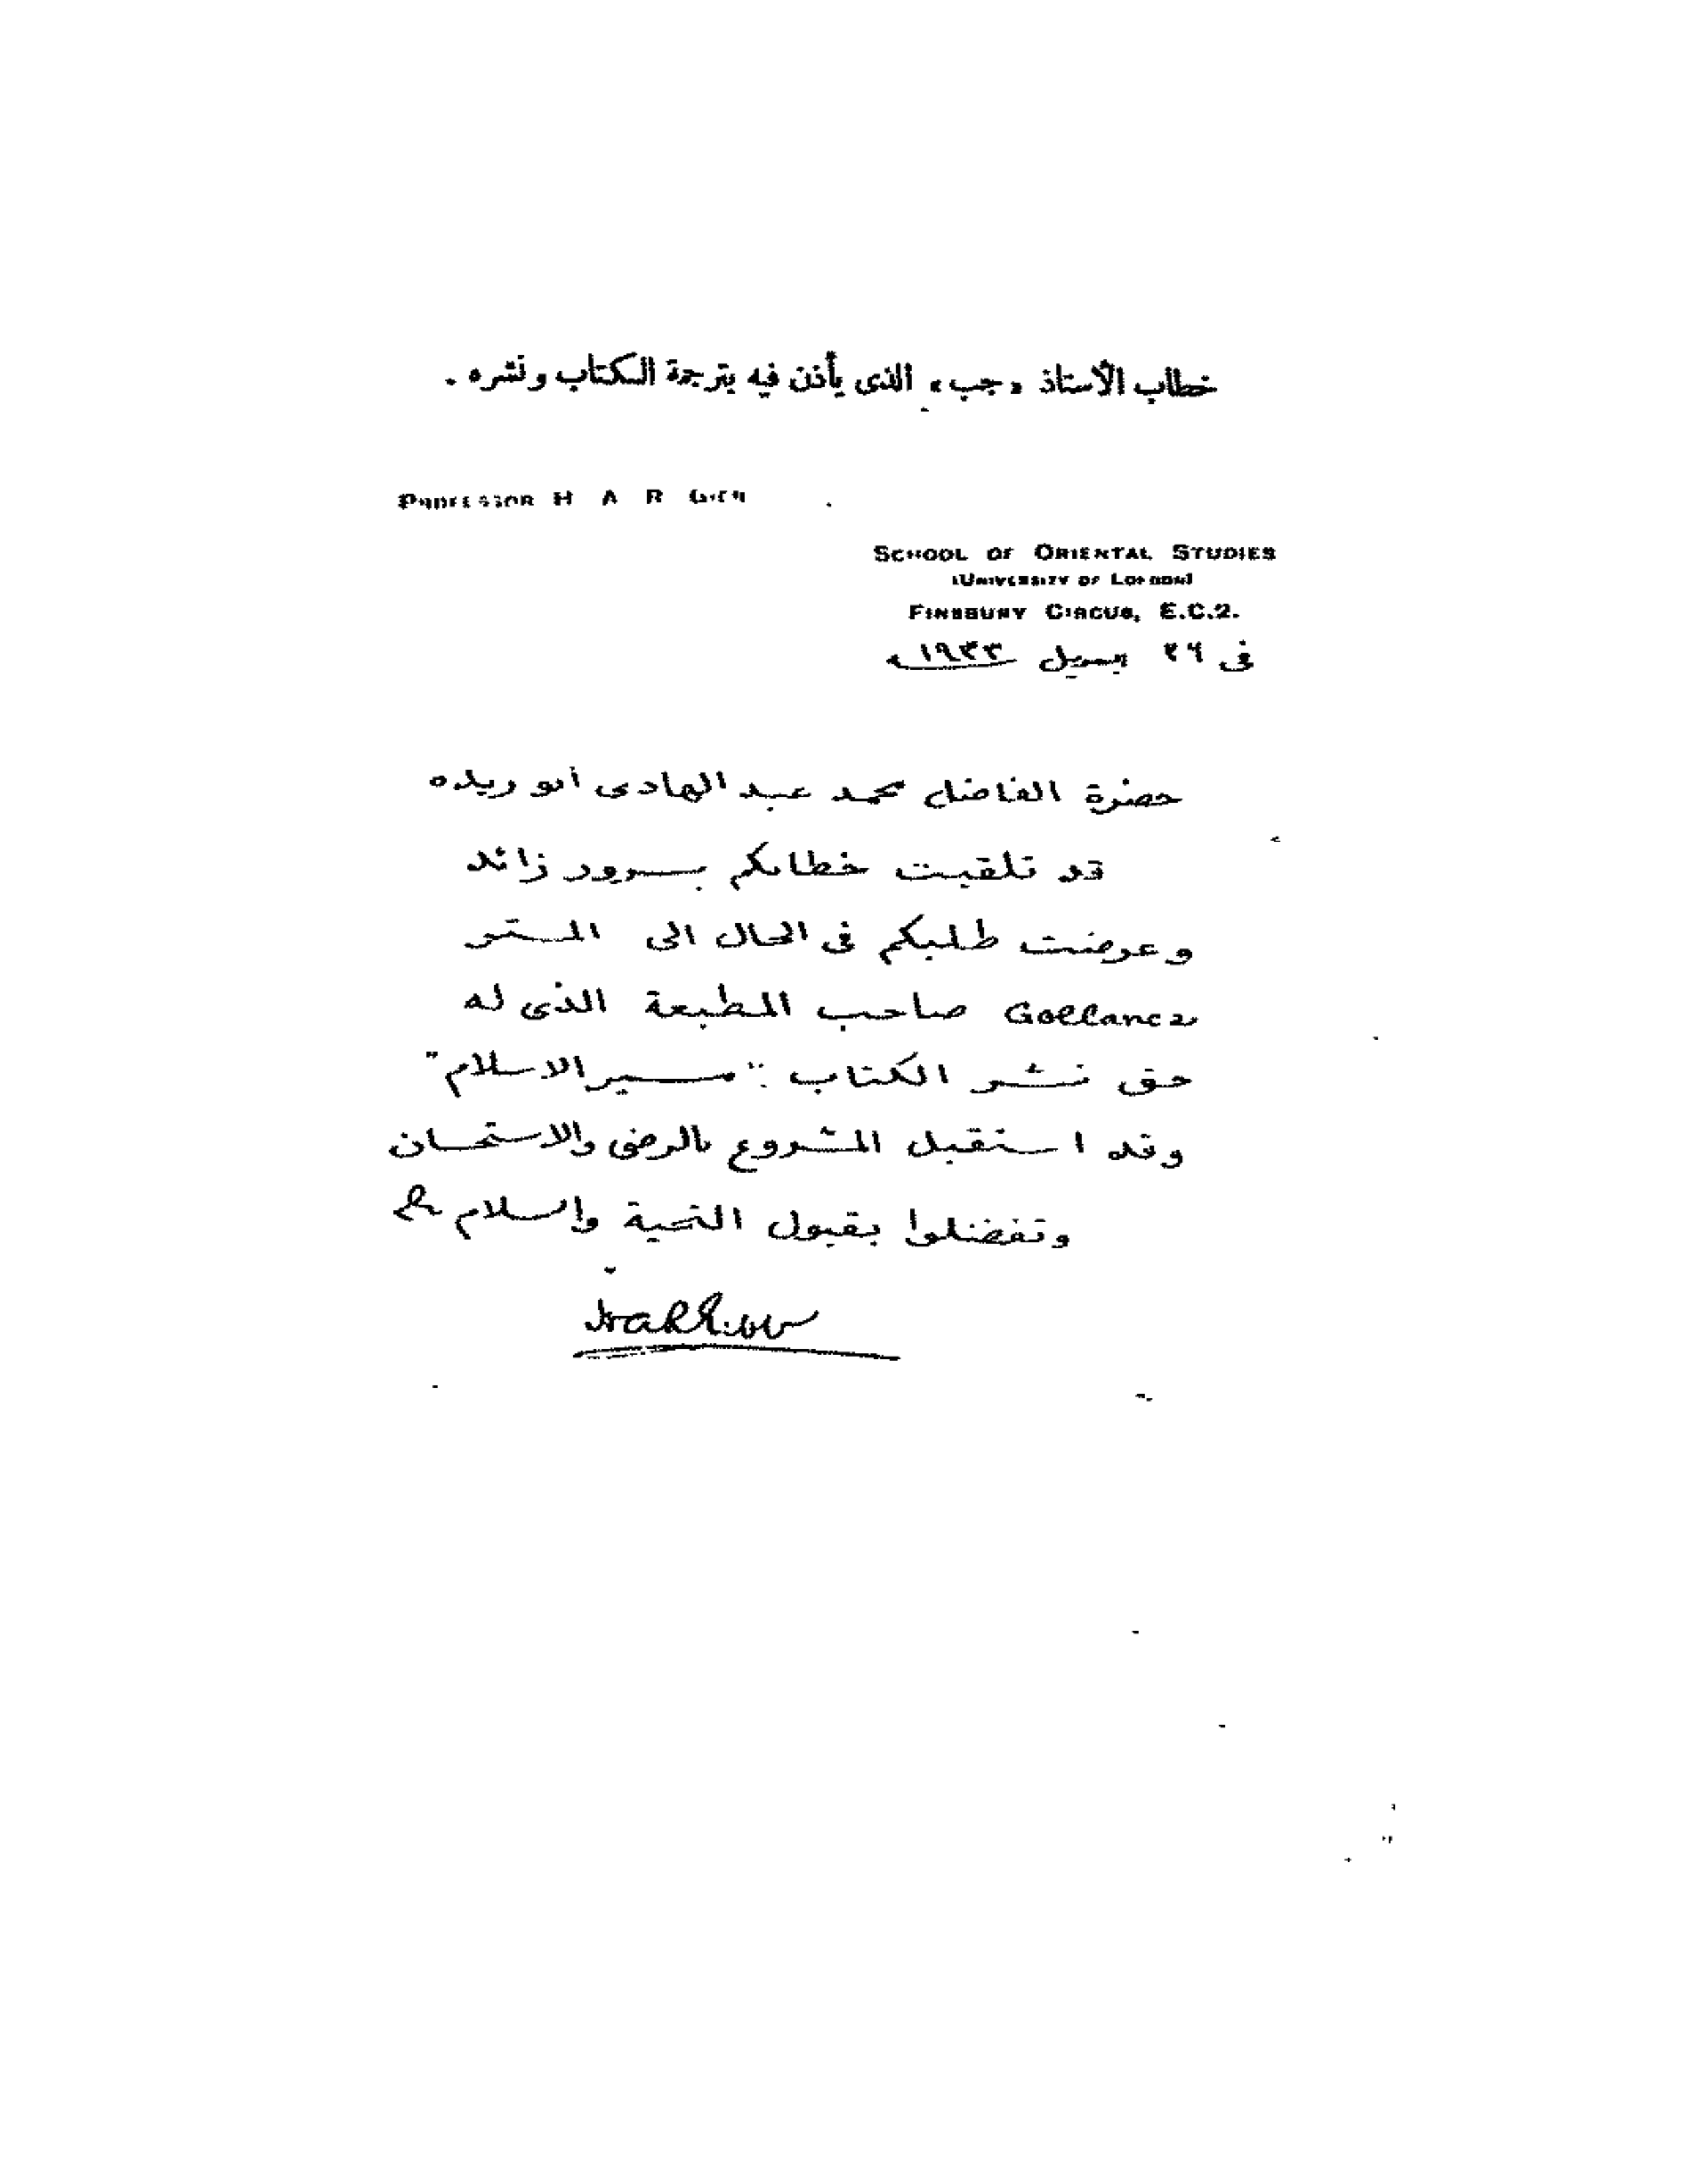 خطاب الأستاذ «جب» الذى يأذن فيه بترجمة الكتاب ونشره .
PROFESSOR H A R GIBB
SCHOOL OF ORIENTAL STUDIES
(UNIVERSITY OF LONDON)
FINSBURY CIRCUS, E.C.2.
فى ٢٦ ابريل ١٩٣٣
حضرة الفاضل محمد عبد الهادى أبو ريده
قد تلقيت خطابكم بسرور زائد
وعرضت طلبكم فى الحال الى المستر
Gollancz صاحب المطبعة الذى له
حق نشر الكتاب : "مسير الاسلام"
وقد استقبل المشروع بالرضى والاستحسان
وتفضلوا بقبول التحية والسلام
HAR Gibb